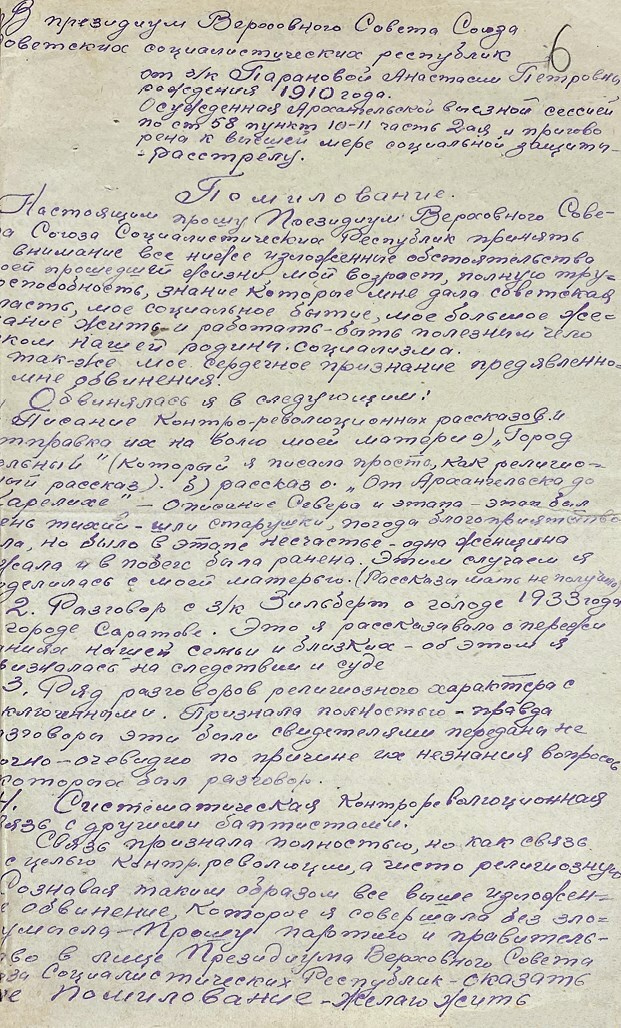 В президиум Верховного Совета Союза
Советских социалистических республик
6
от з/к Парановой Анастасии Петровны
рождения 1910 года.
Осужденная Архангельской выездной сессией
по ст 58 пункт 10-11 часть 2ая и пригово
рена к высшей мере социальной защиты-
-расстрелу.
Помилование.
Настоящим прошу Президиум Верховного Сове-
а Союза Социалистических Республик принять
внимание все ниже изложенние обстоятельства
оей прошедшей жизни, мой возраст, полную тру-
оспособность, знание которые мне дала советская
ласть, мое социальное бытие, мое большое же-
ание жить и работать-быть полезным чело
ком нашей родины. социализма.
так-же мое сердечное признание предявленно-
мне обвинения!
Обвинялась я в следующим:
Писание контро-революционных рассказов. и
тправка их на волю моей матери а) „Город
ельный" (который я писала просто, как религио=
ный рассказ). б) рассказ о. „От Архангельска до
Карелихе" - описание Севера и этапа - этап был
ень тихий - шли старушки, погода благоприятство
ла, но было в этапе несчастье - одна женщина
жала и в побеге была ранена. Этим случаем я
оделилась с моей матерью. (Рассказы мать не получила)
2. Разговор с з/к Зильберт о голоде 1933 года
городе Саратове. Это я рассказывала о пережи
ниях нашей семьи и близких - об этом я
ризналась на следствии и суде
3. Ряд разговоров религиозного характера с
ключенными. Признала полностью - правда
азговоры эти были свидетелями переданы не
очно - очевидно по причине их незнания вопросов
которых был разговор.
4. Систематическая контрореволюционная
вязь с другими баптистами.
Связь признала полностью, но как связь
с целью контр.революции, а чисто религиозную
Сознавая таким образом все выше изложен=
е обвинение, которое я совершала без зло=
умысла - Прошу партию и правитель-
во в лице Президиума Верховного Совета
юза Социалистических Республик - оказать
не Помилование - желаю жить